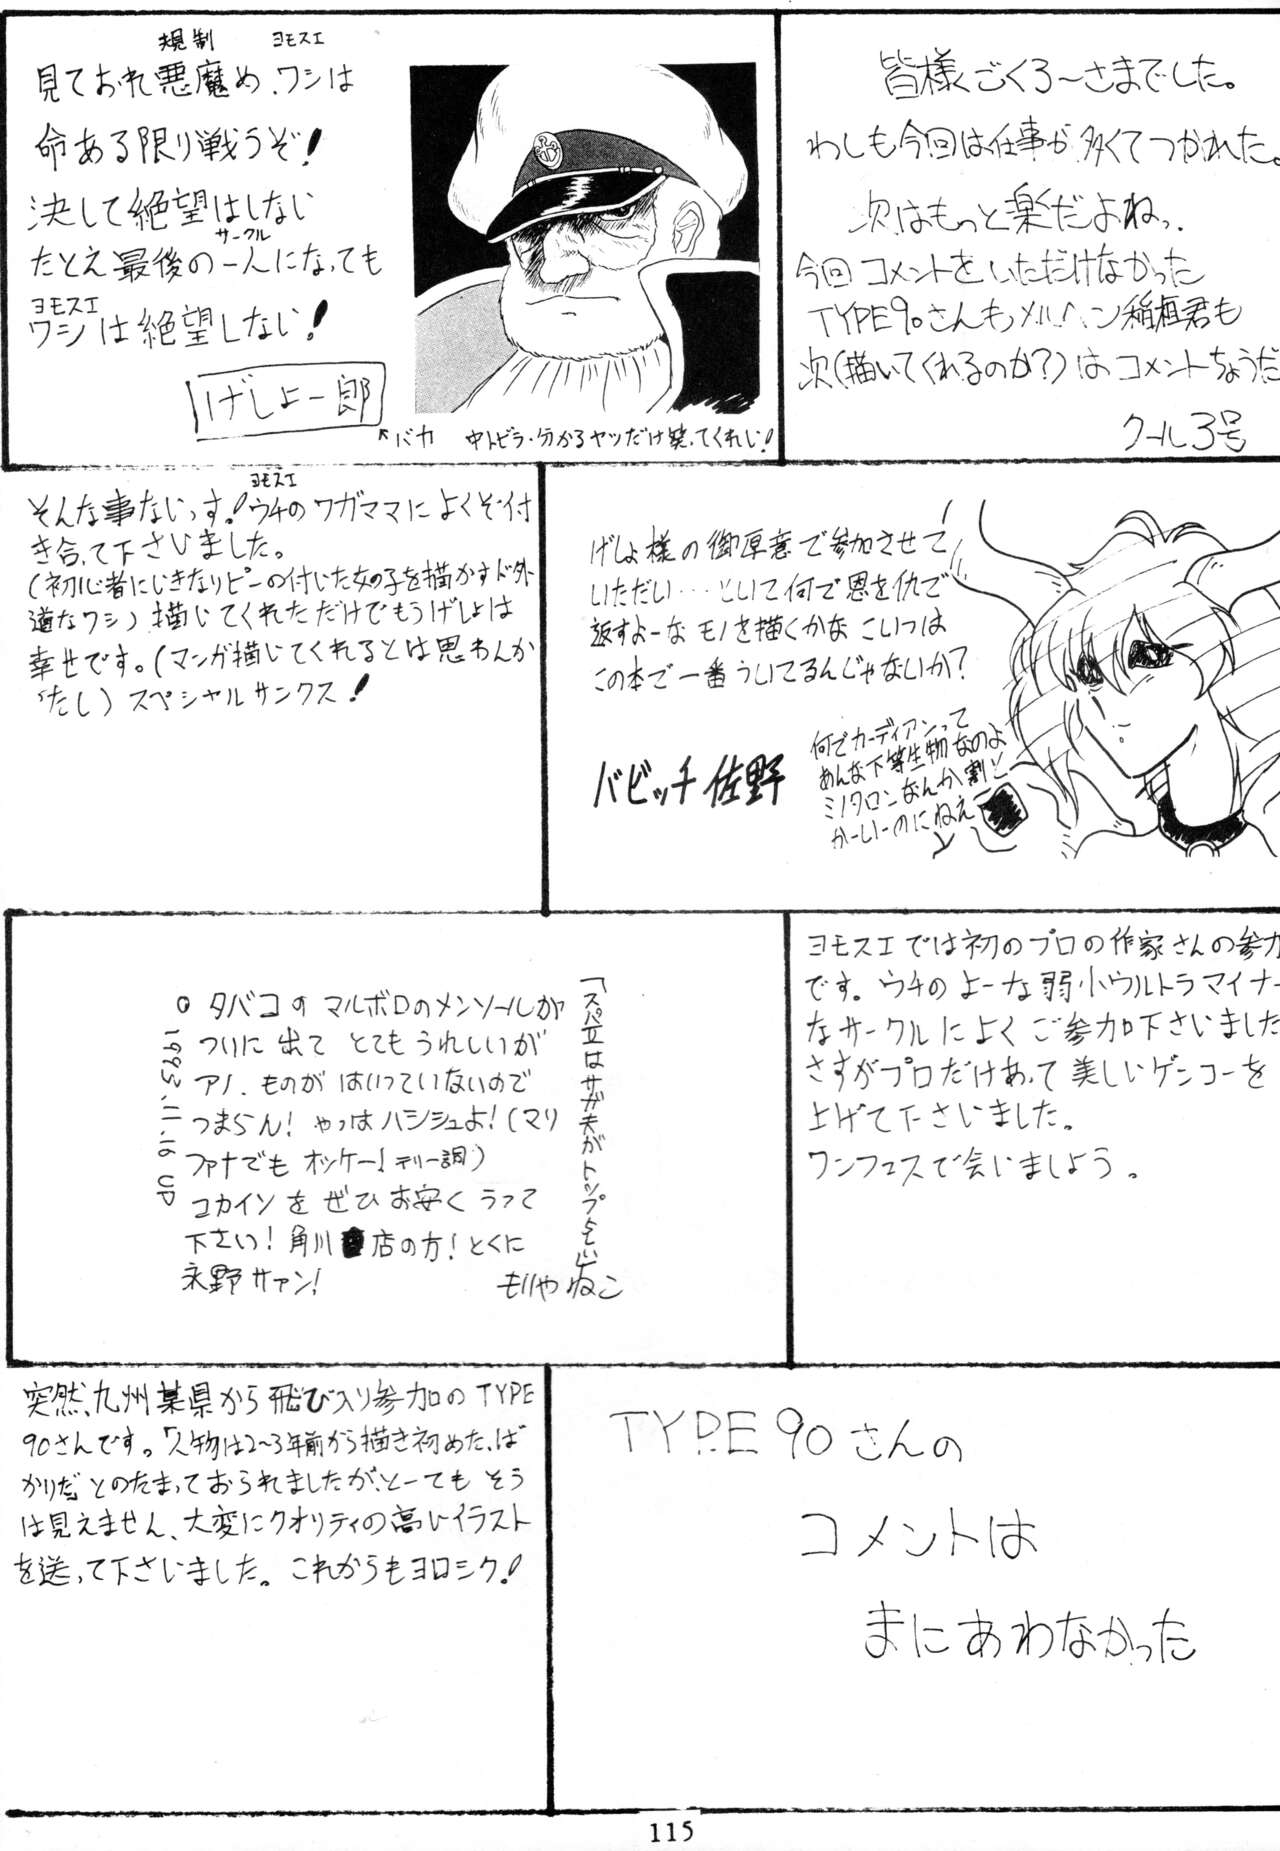 規制 ヨモスエ
見ておれ悪魔め、ワシは
命ある限り戦うぞ!
決して絶望はしない
サークル
たとえ最後の一人になっても
ヨモスエ
ワシは絶望しない!
げしよー郎
↖バカ 中トビラ・分かるヤツだけ笑ってくれい!
皆様ごくろ〜さまでした。
わしも今回は仕事が多くてつかれた。
次はもっと楽だよねっ.
今回コメントをいただけなかった
TYPE90さんもメルヘン稲垣君も
次(描いてくれるのか?)はコメントちょうだ
クール3号
ヨモスエ
そんな事ないっす!ウチのワガママによくぞ付
き合って下さいました。
(初心者にいきなりピーの付いた女の子を描かすド外
道なワシ)描いてくれただけでもうげしよは
幸せです。(マンガ描いてくれるとは思わんか
ったし)スペシャルサンクス!
げしよ様の御厚意で参加させて
いただい・・・といて何で恩を仇で
返すよーなモノを描くかな こいつは
この本で一番ういてるんじゃないか?
バビッチ佐野
何でガーディアンって
あんな下等生物なのよ
ミノタロンなんか割と
かーいーのにねえ
「スパIIはサガ夫がトップっとい」
○ タバコのマルボロのメンソールが
ついに出て とてもうれしいが
アノ.ものがはいっていないので
つまらん!やっぱハシシュよ!(マリ
ファナでもオッケー!テリー調)
コカインをぜひお安くうって
下さい!角川 店の方!とくに
永野サァン!
もりやねこ
1993.11.16 UP
ヨモスエでは初のプロの作家さんの参加
です。ウチのよーな弱小ウルトラマイナー
なサークルによくご参加下さいました
さすがプロだけあって美しいゲンコーを
上げて下さいました。
ワンフェスで会いましょう。
突然、九州某県から飛び入り参加のTYPE
90さんです。「人物は2〜3年前から描き初めたば
かりだ」とのたまっておられましたが、とーてもそう
は見えません、大変にクオリティの高いイラスト
を送って下さいました。これからもヨロシク!
TYPE90さんの
コメントは
まにあわなかった
115